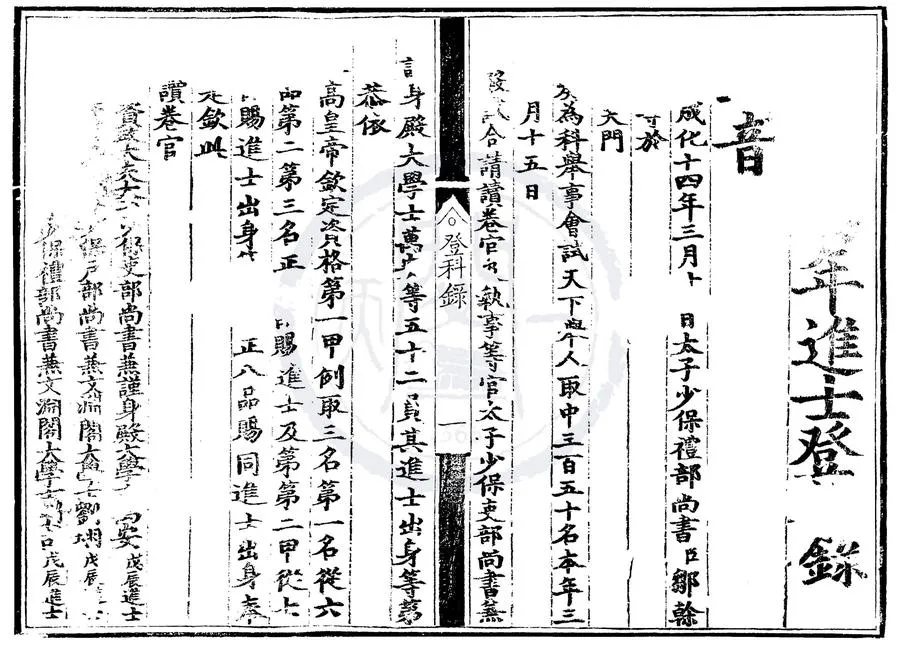 年進士登 錄
音
成化十四年三月 日太子少保禮部尚書臣鄒幹
等於
大門
為科舉事會試天下舉人取中三百五十名本年三
月十五日
合請讀卷官 執事等官太子少保吏部尚書兼
身殿大學士萬安等五十二員其進士出身等第
恭依
高皇帝欽定資格第一甲例取三名第一名從六
品第二第三名正 賜進士及第第二甲從七
賜進士出身 正八品賜同進士出身奉
欽此
讀卷官
資政大夫太 保吏部尚書兼謹身殿大學 安 戊辰進士
保戶部尚書兼文淵閣大學士劉珝 戊辰進士
保禮部尚書兼文淵閣大學士劉吉 戊辰進士
登科錄
一